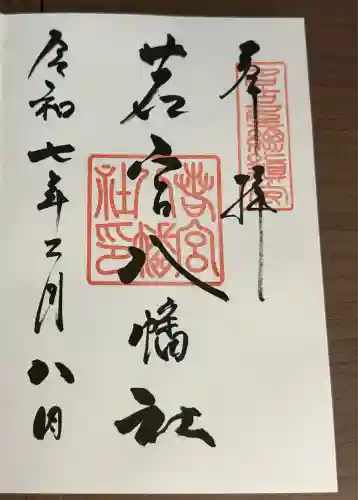 奉拝
若宮八幡社
令和七年二月八日
若宮八幡社印